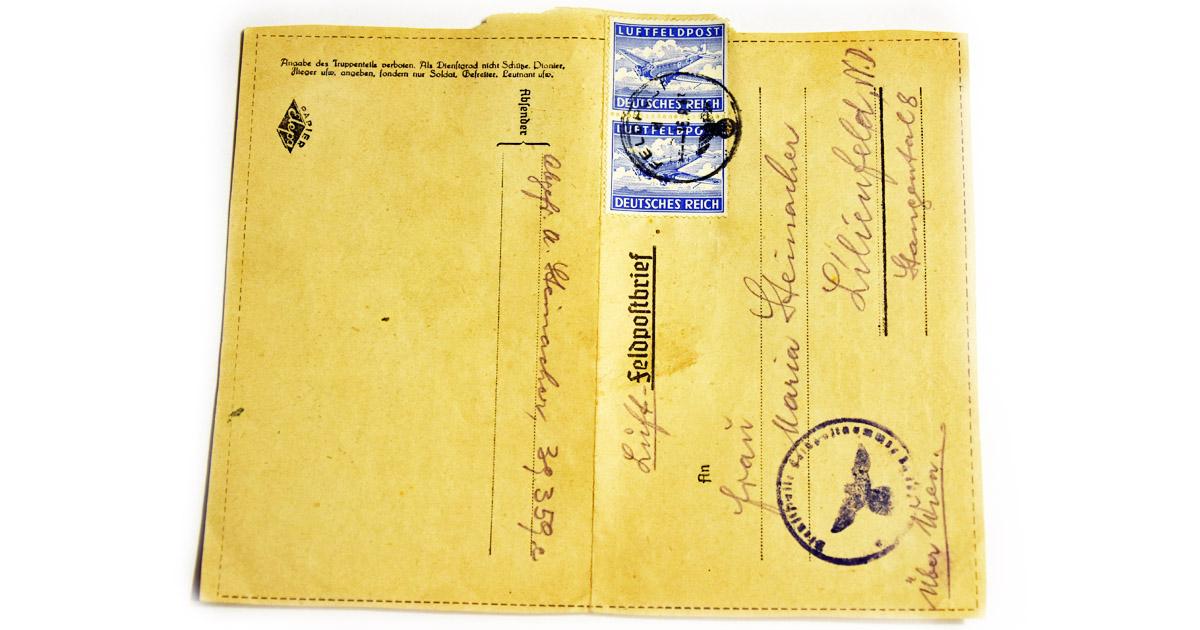 Angabe des Truppenteils verboten. Als Dienstgrad nicht Schütze, Pionier,
Flieger usw. angeben, sondern nur Soldat, Gefreiter, Leutnant usw.
PAPIER
Absender
A. Steinacher, 39359
LUFTFELDPOST
DEUTSCHES REICH
LUFTFELDPO
DEUTSCHES REICH
Luft-Feldpostbrief
An
Frau
Maria Steinacher
Lilienfeld, N.D.
8
Über Wien.